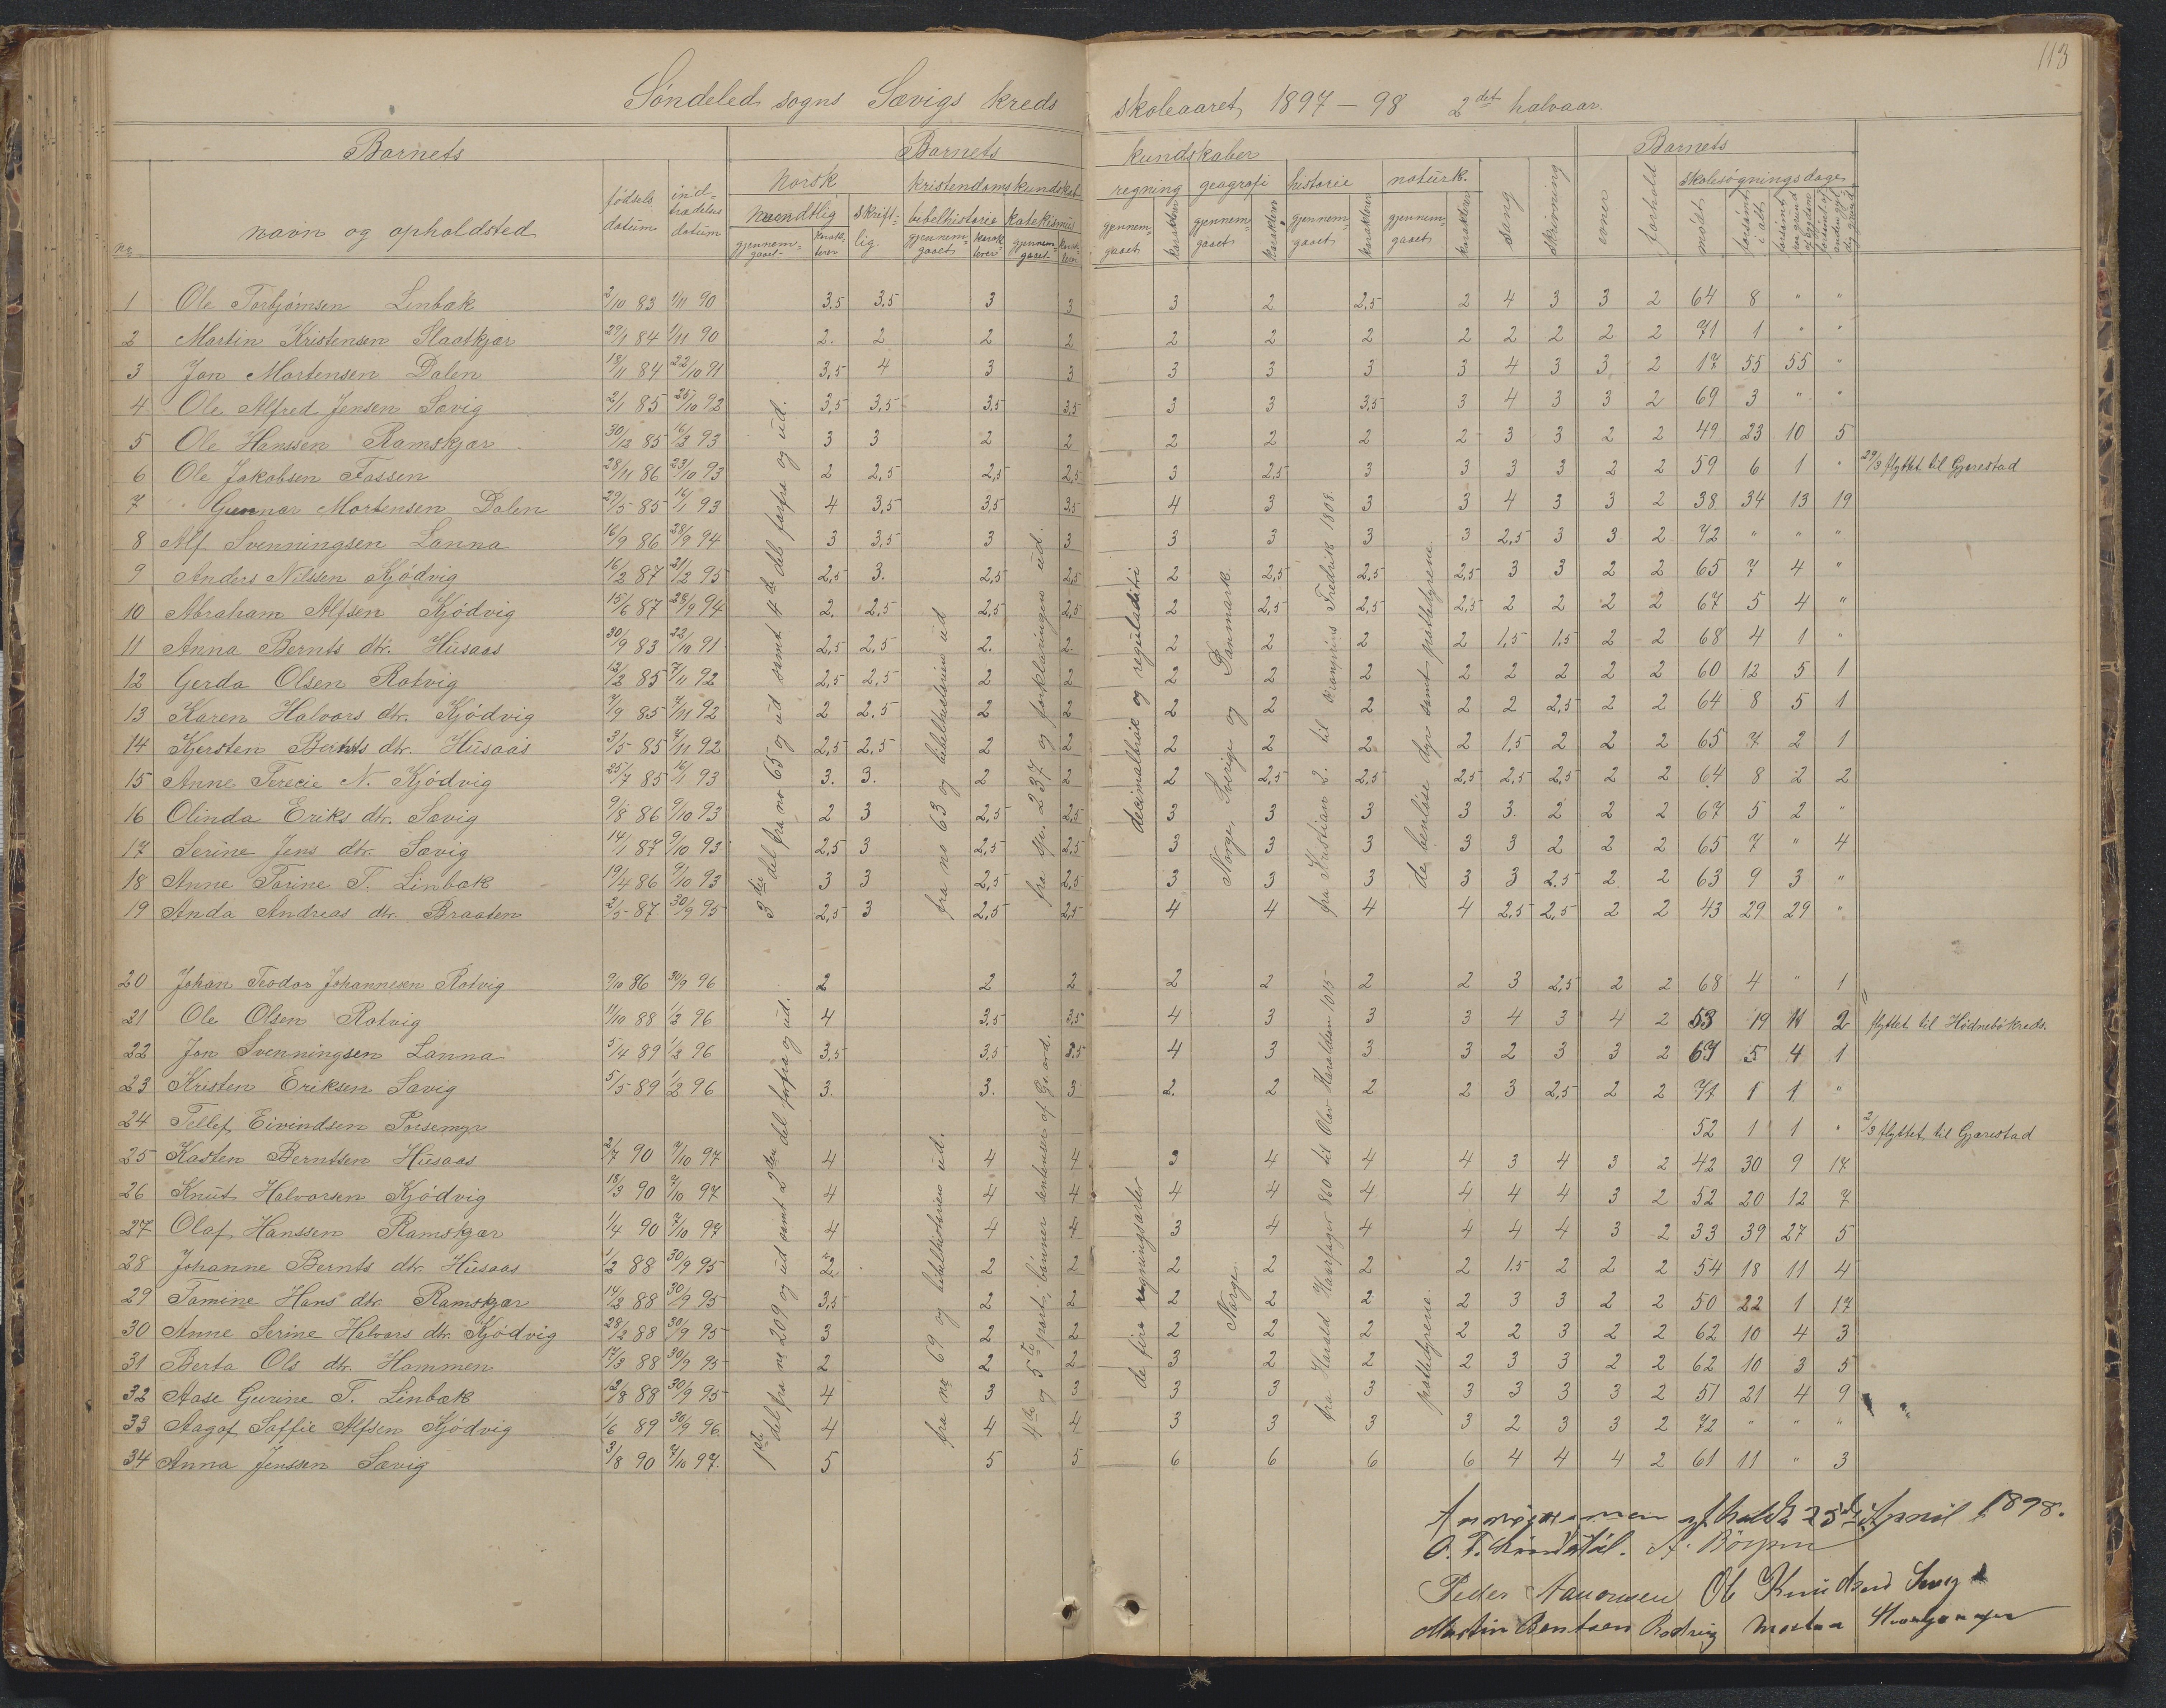 113
Söndeled sogns Sævigs kreds skoleaaret 1897 – 98 2det halvaar.
Barnets Barnets kundskaber Barnets
no navn og opholdsted fødsels datum indtrædelses datum norsk kristendomskundskab regning geografi historie naturk. sang skrivning evner forhold skolesøgningsdage
mundtlig skriftlig. bibelhistorie katekismus mødt forsømt i alt
gjennemgaaet karakterer gjennemgaaet karakterer gjennemgaaet karakterer gjennemgaaet karakterer gjennemgaaet karakterer gjennemgaaet karakterer gjennemgaaet karakterer
1 Ole Torbjörnsen Linbæk 2/10 83 1/11 90 3,5 3,5 3 3 3 2 2,5 2 4 3 3 2 64 8 " "
2 Martin Kristensen Slaatkjær 29/1 84 1/11 90 2. 2 2 2 2 2 2 2 2 2 2 2 71 1 " "
3 Jon Mortensen Dalen 18/11 84 22/10 91 3,5 4 3 3 3 3 3 3 4 3 3 2 17 55 55 "
4 Ole Alfred Jensen Sævig 2/1 85 25/10 92 3,5 3,5 3,5 3,5 3 3 3,5 3 4 3 3 2 69 3 " "
5 Ole Hanssen Ramskjær 30/12 85 16/2 93 3 3 2 2 2 2 2 2 3 3 2 2 49 23 10 5
6 Ole Jakobsen Fossen 28/11 86 23/10 93 2 2,5 2,5 2,5 3 2,5 3 3 3 3 2 2 59 6 1 " 29/3 flyttet til Gjerestad
7 Gunnar Mortensen Dalen 29/5 85 16/1 93 4 3,5 3,5 3,5 4 3 3 3 4 3 3 2 38 34 13 19
8 Alf Svenningsen Lanna 16/9 86 28/9 94 3 3,5 3 3 3 3 3 3 2,5 3 3 2 72 " " "
9 Anders Nilssen Kjödvig 16/2 87 21/2 95 2,5 3. 2,5 2,5 2 2,5 2,5 2,5 3 3 2 2 65 7 4 "
10 Abraham Alfsen Kjödvig 15/6 87 28/9 94 2. 2,5 2,5 2,5 2 2,5 2,5 2,5 2 2 2 2 67 5 4 "
11 Anna Bernts dtr. Husaas 30/9 83 22/10 91 2,5 2,5 2. 2. 2 2 2 2 1,5 1,5 2 2 68 4 1 "
12 Gerda Olsen Rotvig 12/2 85 7/11 92 2,5 2,5 2 2 2 2 2 2 2 2 2 2 60 12 5 1
13 Karen Halvors dtr. Kjödvig 7/9 85 7/11 92 2 2,5 2 2 2 2 2 2 2 2,5 2 2 64 8 5 1
14 Kjersten Bernts dtr. Husaas 3/5 85 7/11 92 2,5 2,5 2 2 2 2 2 2 1,5 2 2 2 65 7 2 1
15 Anne Terecie N. Kjödvig 25/7 85 16/1 93 3. 3. 2 2 2 2,5 2,5 2,5 2,5 2,5 2 2 64 8 2 2
16 Olinda Eriks dtr. Sævig 9/8 86 9/10 93 2 3 2,5 2,5 3 3 3 3 3. 2 2 2 67 5 2 "
17 Serine Jens dtr. Sævig 14/1 87 9/10 93 2,5 3 2,5 2,5 3 3 3 3 3 2 2 2 65 7 " 4
18 Anne Torine T. Linbæk 19/4 86 9/10 93 3 3 2,5 2,5 3 3 3 3 3 2.5 2 2 63 9 3 "
19 Anda Andreas dtr. Braaten 2/5 87 30/9 95 2,5 3 2,5 2,5 4 4 4 4 2,5 2,5 2 2 43 29 29 "
3die del fra no 65 og ud samt 4de del forfra og ud.
fra no 63 og bibelhistorien ud
fra spr. 237 og forklaringen ud.
decimalbrök og reguladetri
Norge, Sverige og Danmark.
fra Kristian 2. til kronprins Fredrik 1808.
de benløse dyr samt pattedyrene.
20 Johan Teodor Johannesen Rotvig 9/10 86 30/9 96 2 2 2 2 2 2 2 3 2,5 2 2 68 4 " 1
21 Ole Olsen Rotvig 11/10 88 1/2 96 4 3,5 3,5 4 3 3 3 4 3 4 2 53 19 2 flyttet til Hödnebökreds.
22 Jon Svenningsen Lanna 5/4 89 1/2 96 3,5 3,5 3.5 4 3 3 3 2 3 3 2 67 5 4 1
23 Kristen Eriksen Sævig 5/5 89 1/2 96 3. 3. 3 2. 2 2 2 3 2,5 2 2 71 1 1 "
24 Tellef Eivindsen Porsemyr 52 1 1 " 2/3 flyttet til Gjærestad
25 Kasten Berntsen Husaas 2/7 90 7/10 97 4 4 4 3 4 4 4 3 4 3 2 42 30 9 17
26 Knut Halvorsen Kjödvig 18/3 90 7/10 97 4 4 4 4 4 4 4 4 4 3 2 52 20 12 7
27 Olaf Hanssen Ramskjær 11/4 90 7/10 97 4 4 4 3 4 4 4 4 4 3 2 33 39 27 5
28 Johanne Bernts dtr. Husaas 1/2 88 30/9 95 2 2 2 2 2 2 2 1.5 2 2 2 54 18 11 4
29 Tomine Hans dtr. Ramskjær 14/2 88 30/9 95 3,5 2 2 2 2 2 2 3 3 2 2 50 22 1 17
30 Anne Serine Halvors dtr. Kjödvig 28/2 88 30/9 95 3 2 2 2 2 2 2 2 3 2 2 62 10 4 3
31 Berta Ols dtr. Hammen 17/3 88 30/9 95 2 2 2 3 2 2 2 3 3 2 2 62 10 3 5
32 Aase Gurine T. Linbæk 12/8 88 30/9 95 4 3 3 3 3 3 3 3 3 3 2 51 21 4 9
33 Aagot Soffie Alfsen Kjödvig 1/6 89 30/9 96 4 4 4 3 3 3 3 2 3 3 2 72 " " "
34 Anna Jenssen Sævig 3/8 90 7/10 97. 5 5 5 6 6 6 6 4 4 4 2 61 11 " 3
1ste del fra no 209 og ud samt 2den del forfra og ud.
fra no 69 og bibelhistorien ud.
4de og 5te part, bönner sentenser af Gs. ord.
de fire regningsarter
Norge.
fra Harald Haarfager 860 til Olav Haraldsen 1015
pattedyrene.
afholdt 25de April 1898.
O. T.
Peder Aanonsen Ole Knudsen Sævig
Martin Bentsen Rodvig